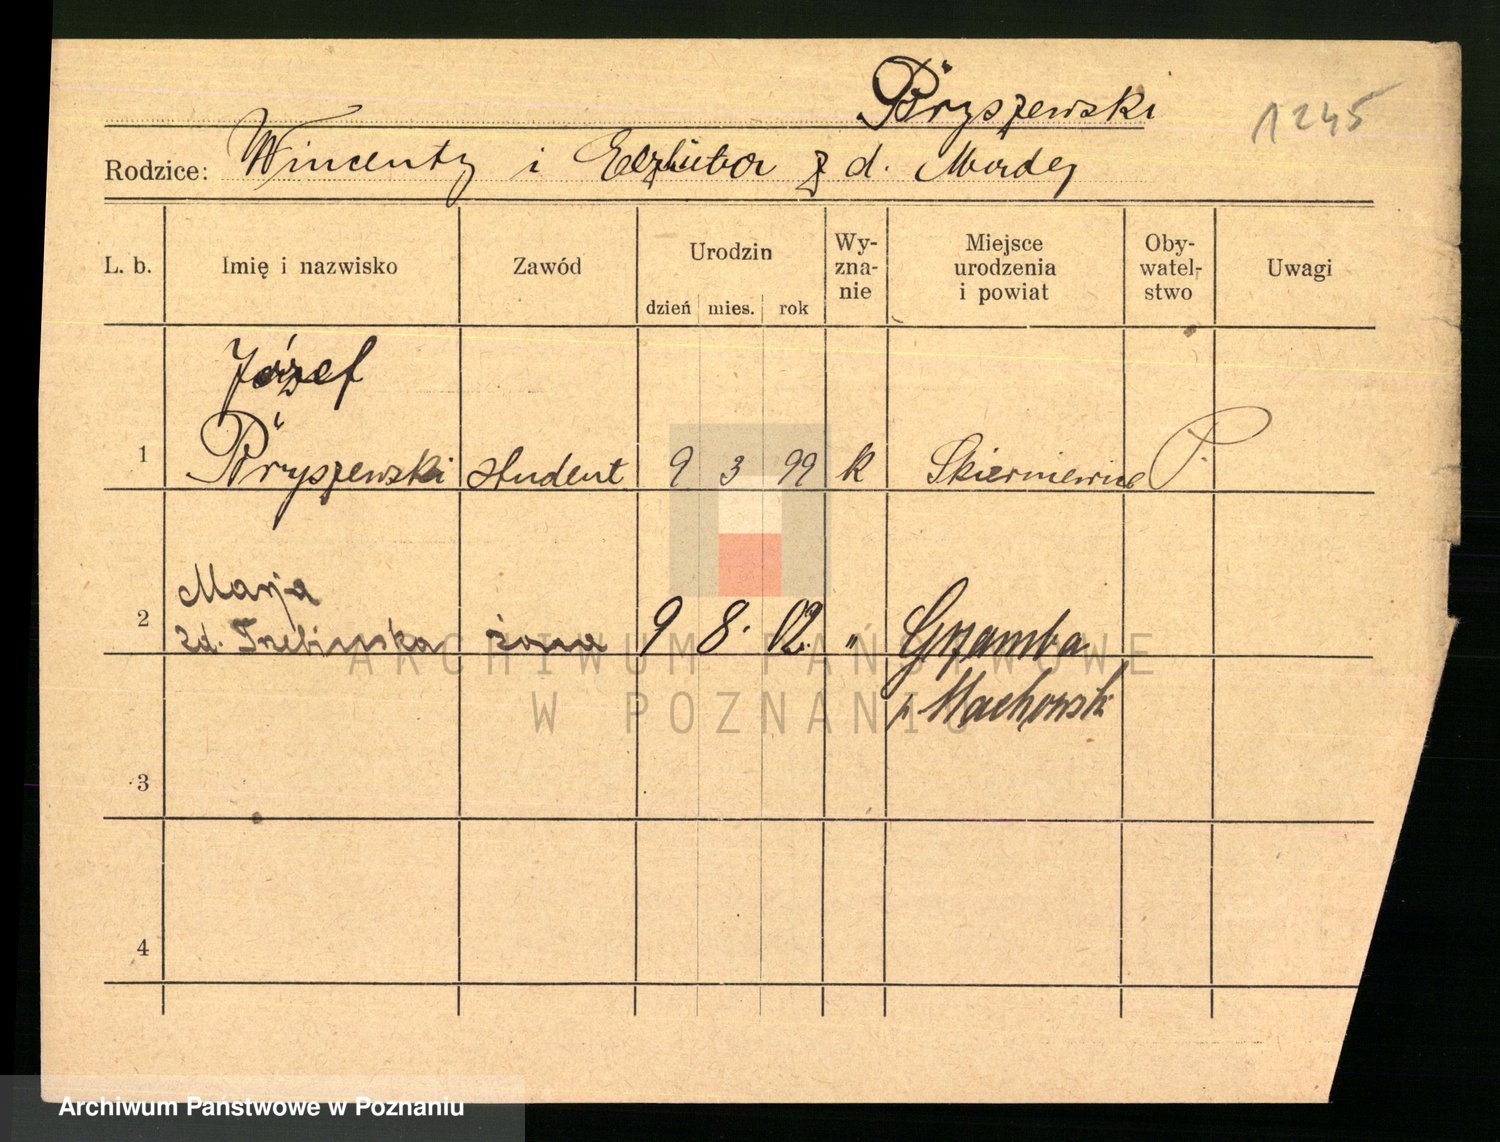 Bryszewski
1245
Rodzice: Wincenty i Elżbieta z d. Mordej
L. b. Imię i nazwisko Zawód Urodzin dzień mies. rok Wy-zna-nie Miejsce urodzenia i powiat Oby-watel-stwo Uwagi
Józef
1 Bryszewski student 9 3 99 k Skierniewice P.
Marja
2 zd. Trebinska żona 9 8. 02. " Gzamba
p. Machowski
3
4
ARCHIWUM PAŃSTWOWE
W POZNANIU
Archiwum Państwowe w Poznaniu